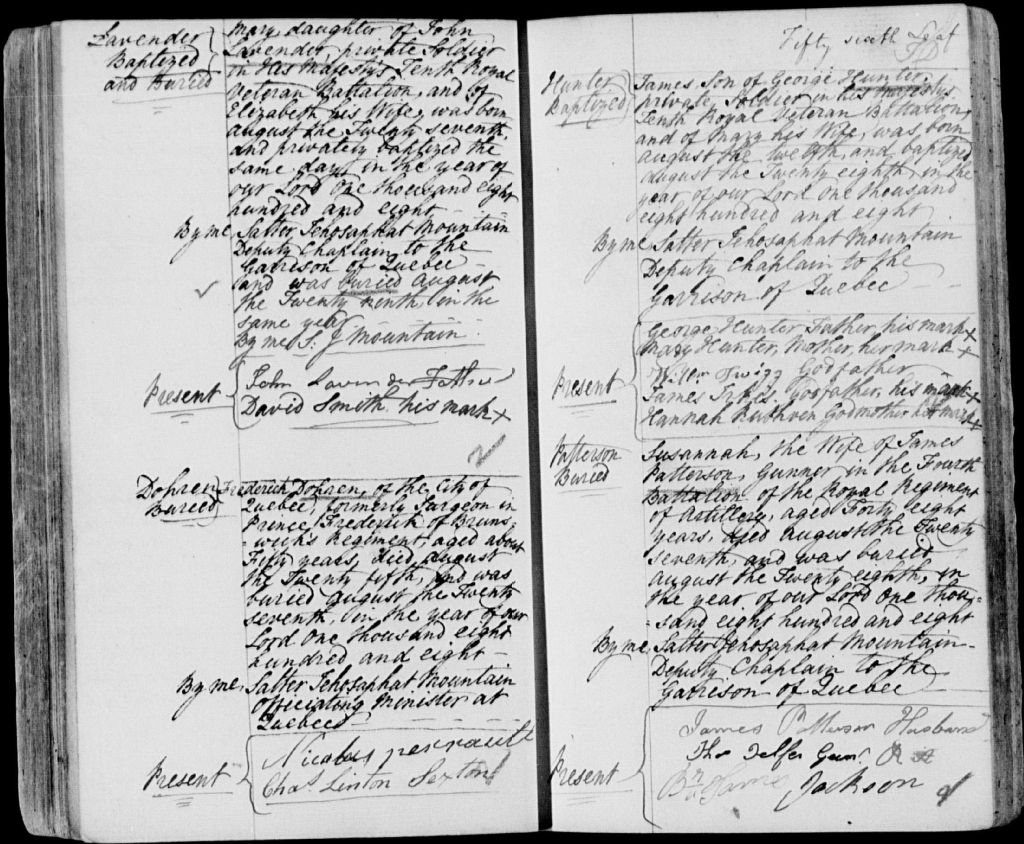 Lavender
Baptized
and Buried
Mary, daughter of John
Lavender, private Soldier
in His Majesty's Tenth Royal
Veteran Battalion, and of
Elizabeth his Wife, was born
August the Twenty seventh,
and privately baptized the
same day, in the year of
our Lord One thousand eight
hundred and eight
By me, Salter Jehosaphat Mountain
Deputy Chaplain to the
Garrison of Quebec
and was buried August
the Twenty ninth, in the
same year
By me S. J Mountain
Present
John Lavender Father
David Smith his mark X
Dohren
Buried
Frederick Dohren, of the City of
Quebec, formerly Surgeon in
Prince Frederick of Bruns-
-wick's Regiment, aged about
Fifty years, died August
the Twenty fifth, and was
buried August the Twenty
seventh, in the year of our
Lord One thousand eight
hundred and eight
By me, Salter Jehosaphat Mountain
Officiating Minister at
Quebec
Present
Nicolas perrault
Chas. Linton Sexton
Fifty sixth Leaf
Hunter
Baptized
James, Son of George Hunter,
private Soldier in his Majesty's
Tenth Royal Veteran Battalion,
and of Mary his Wife, was born
August the twelfth, and baptized
August the Twenty eighth, in the
year of our Lord One thousand
eight hundred and eight
By me Salter Jehosaphat Mountain
Deputy Chaplain to the
Garrison of Quebec
Present
George Hunter, Father, his mark X
Mary Hunter, Mother, her mark X
Willm Twigg Godfather
James Godfather, his mark X
Hannah Ruthven Godmother her mark X
Patterson
Buried
Susannah, the Wife of James
Patterson, Gunner in the Fourth
Battalion of the Royal Regiment
of Artillery, aged Forty eight
years, died August the Twenty
seventh, and was buried
August the Twenty eighth, in
the year of our Lord One thou-
-sand eight hundred and eight
By me, Salter Jehosaphat Mountain
Deputy Chaplain to the
Garrison of Quebec
Present
James Patterson Husband
Tho Telfer Gunr R A
Jackson